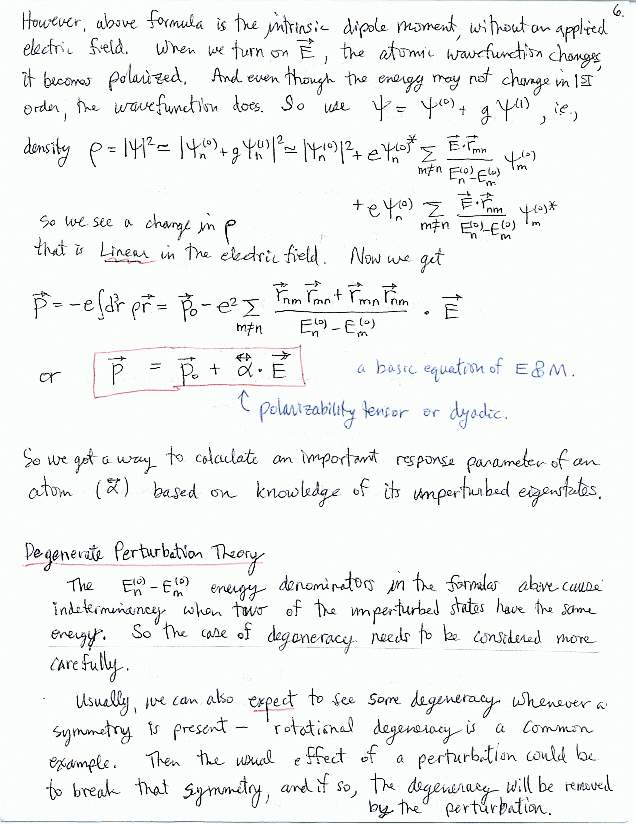 6.
However, above formula is the intrinsic dipole moment, without an applied
electric field. When we turn on E⃗, the atomic wavefunction changes,
it becomes polarized. And even though the energy may not change in 1st
order, the wavefunction does. So use ψ = ψ⁽⁰⁾ + g ψ⁽¹⁾, ie.,
density ρ = |ψ|² ≃ |ψₙ⁽⁰⁾ + g ψₙ⁽¹⁾|² ≃ |ψₙ⁽⁰⁾|² + e ψₙ⁽⁰⁾* Σ_{m≠n} (E⃗·r⃗ₘₙ)/(Eₙ⁽⁰⁾ - Eₘ⁽⁰⁾) ψₘ⁽⁰⁾
+ e ψₙ⁽⁰⁾ Σ_{m≠n} (E⃗·r⃗ₙₘ)/(Eₙ⁽⁰⁾ - Eₘ⁽⁰⁾) ψₘ⁽⁰⁾*
So we see a change in ρ
that is Linear in the electric field. Now we get
p⃗ = -e∫d³r ρr⃗ = p⃗₀ - e² Σ_{m≠n} (r⃗ₙₘ r⃗ₘₙ + r⃗ₘₙ r⃗ₙₘ)/(Eₙ⁽⁰⁾ - Eₘ⁽⁰⁾) · E⃗
or p⃗ = p⃗₀ + α⃡ · E⃗ a basic equation of E&M.
↑ polarizability tensor or dyadic.
So we got a way to calculate an important response parameter of an
atom (α⃡) based on knowledge of its unperturbed eigenstates.
Degenerate Perturbation Theory
The Eₙ⁽⁰⁾ - Eₘ⁽⁰⁾ energy denominators in the formulas above cause
indeterminancy when two of the unperturbed states have the same
energy. So the case of degeneracy needs to be considered more
carefully.
Usually, we can also expect to see some degeneracy whenever a
symmetry is present — rotational degeneracy is a common
example. Then the usual effect of a perturbation could be
to break that symmetry, and if so, the degeneracy will be removed
by the perturbation.